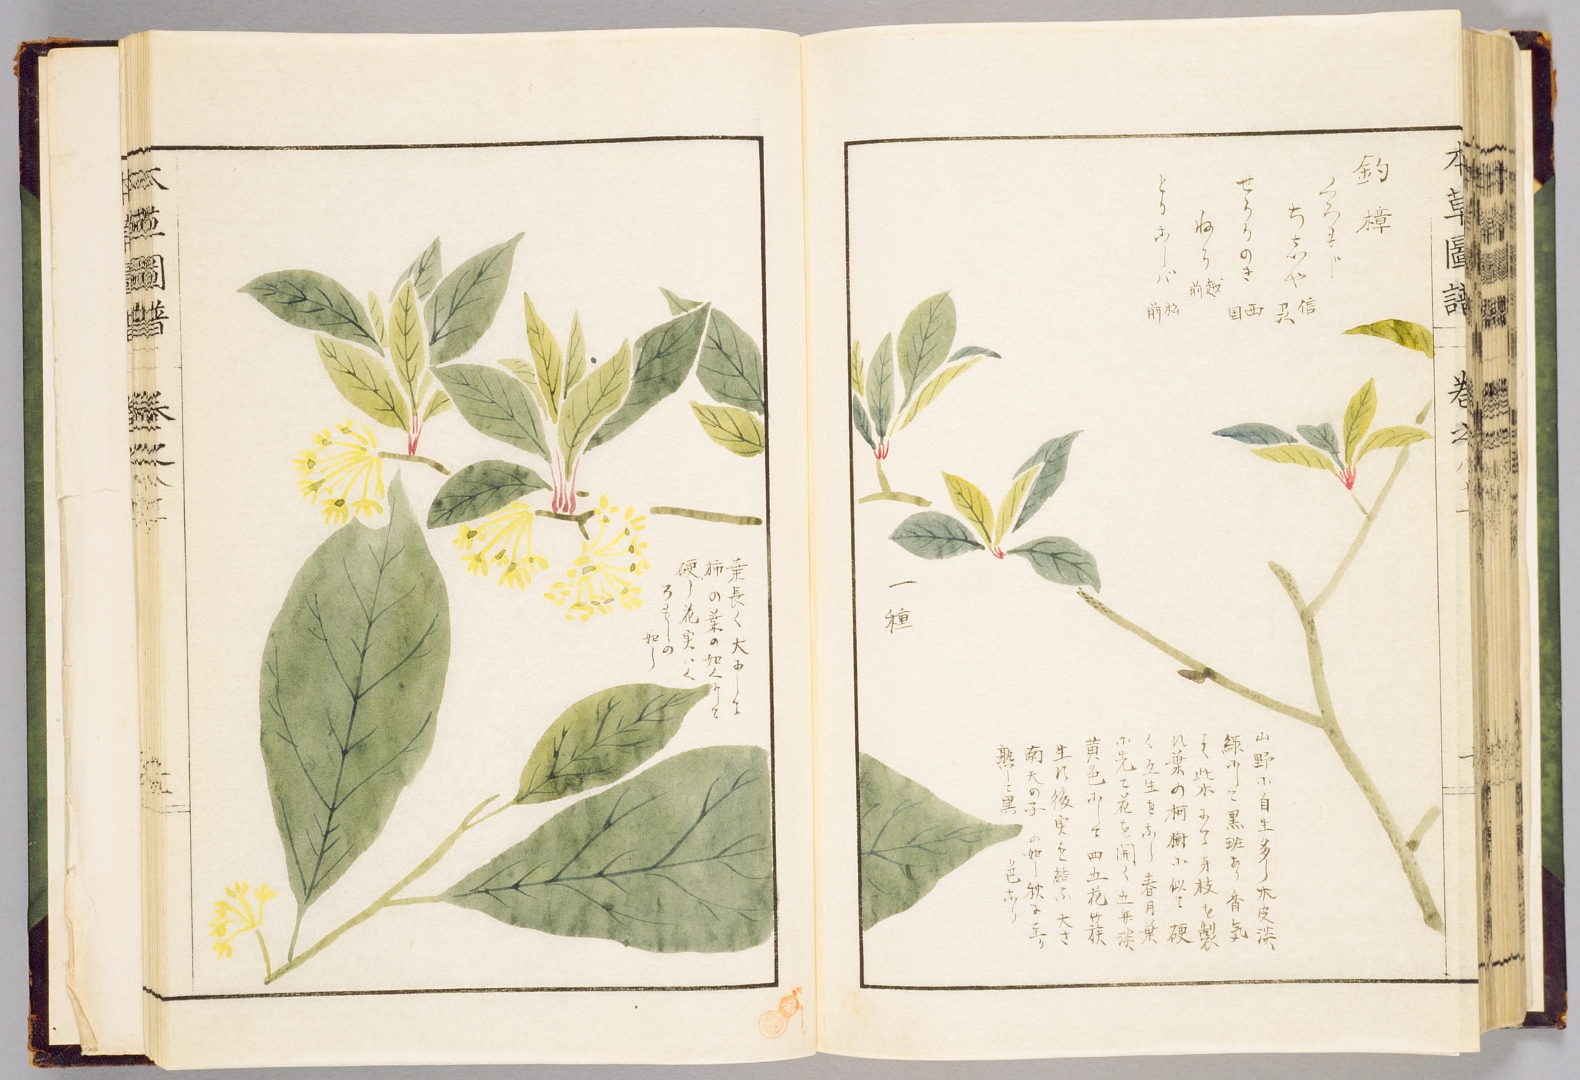 本草圖譜 卷之八十一
釣樟
くろもじ
ちしや 信
せうりのき 西国
ねり 越前
とりこしバ 松前
山野小自生多し木皮淡
緑にして黒斑あり香気
よく此木にて牙枝を製
れ葉の柯樹小似て硬
く互生をなし春月葉
小先て花を開く五弁淡
黄色にして四五花簇
生れ後実を結ふ大さ
南天の子の如し秋に至り
熟して黒色なり
一種
葉長く大にして
柿の葉の如くにて
硬し花実ハく
ろもしの
如し
本草圖譜